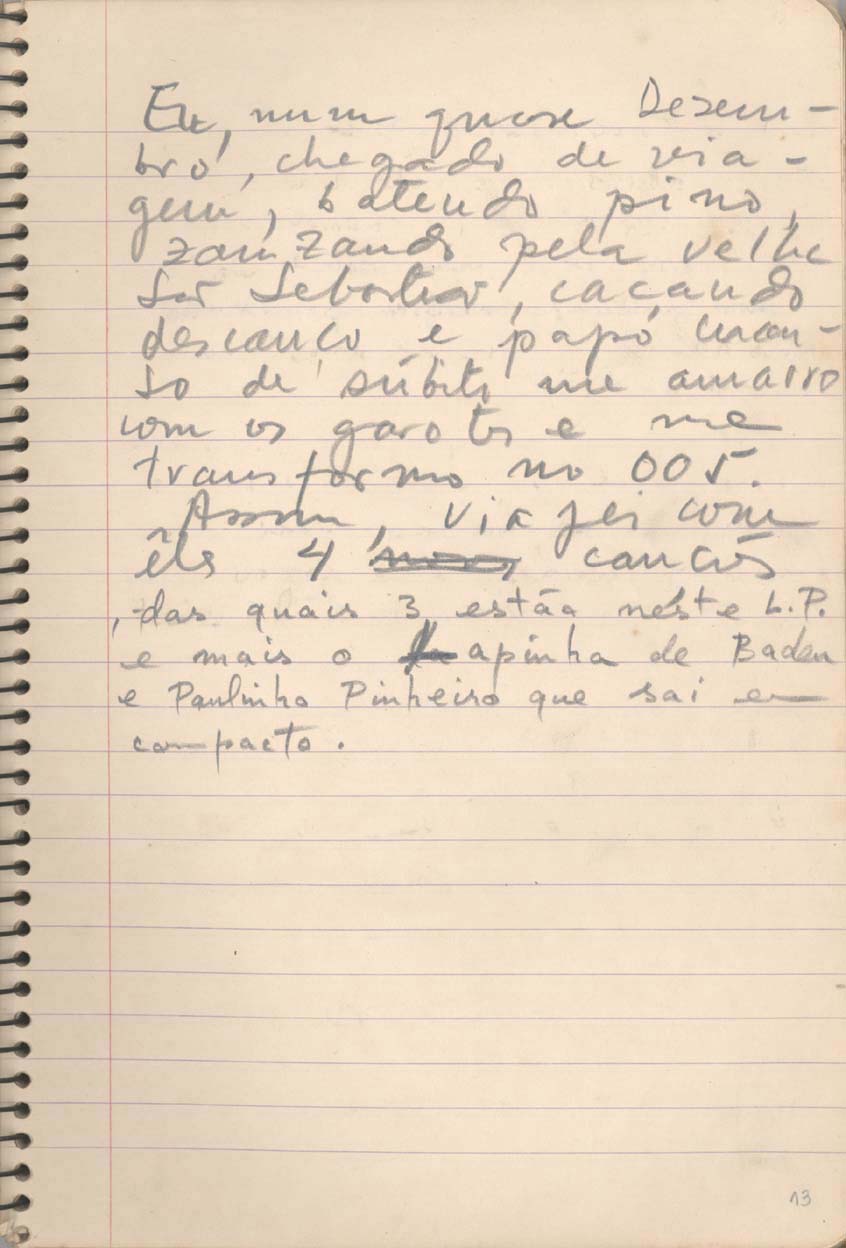 Eu, num quase Dezem-
bro, chegado de via-
gem, batendo pino,
zanzando pela velha
São Sebastião, caçando
descanço e papo man-
so de súbito me amarro
com os garotos e me
transformo no 005.
Assim, viajei com
êles 4 canções
, das quais 3 estão néste L.P.
e mais o Lapinha de Baden
e Paulinho Pinheiro que sai em
compacto.
13